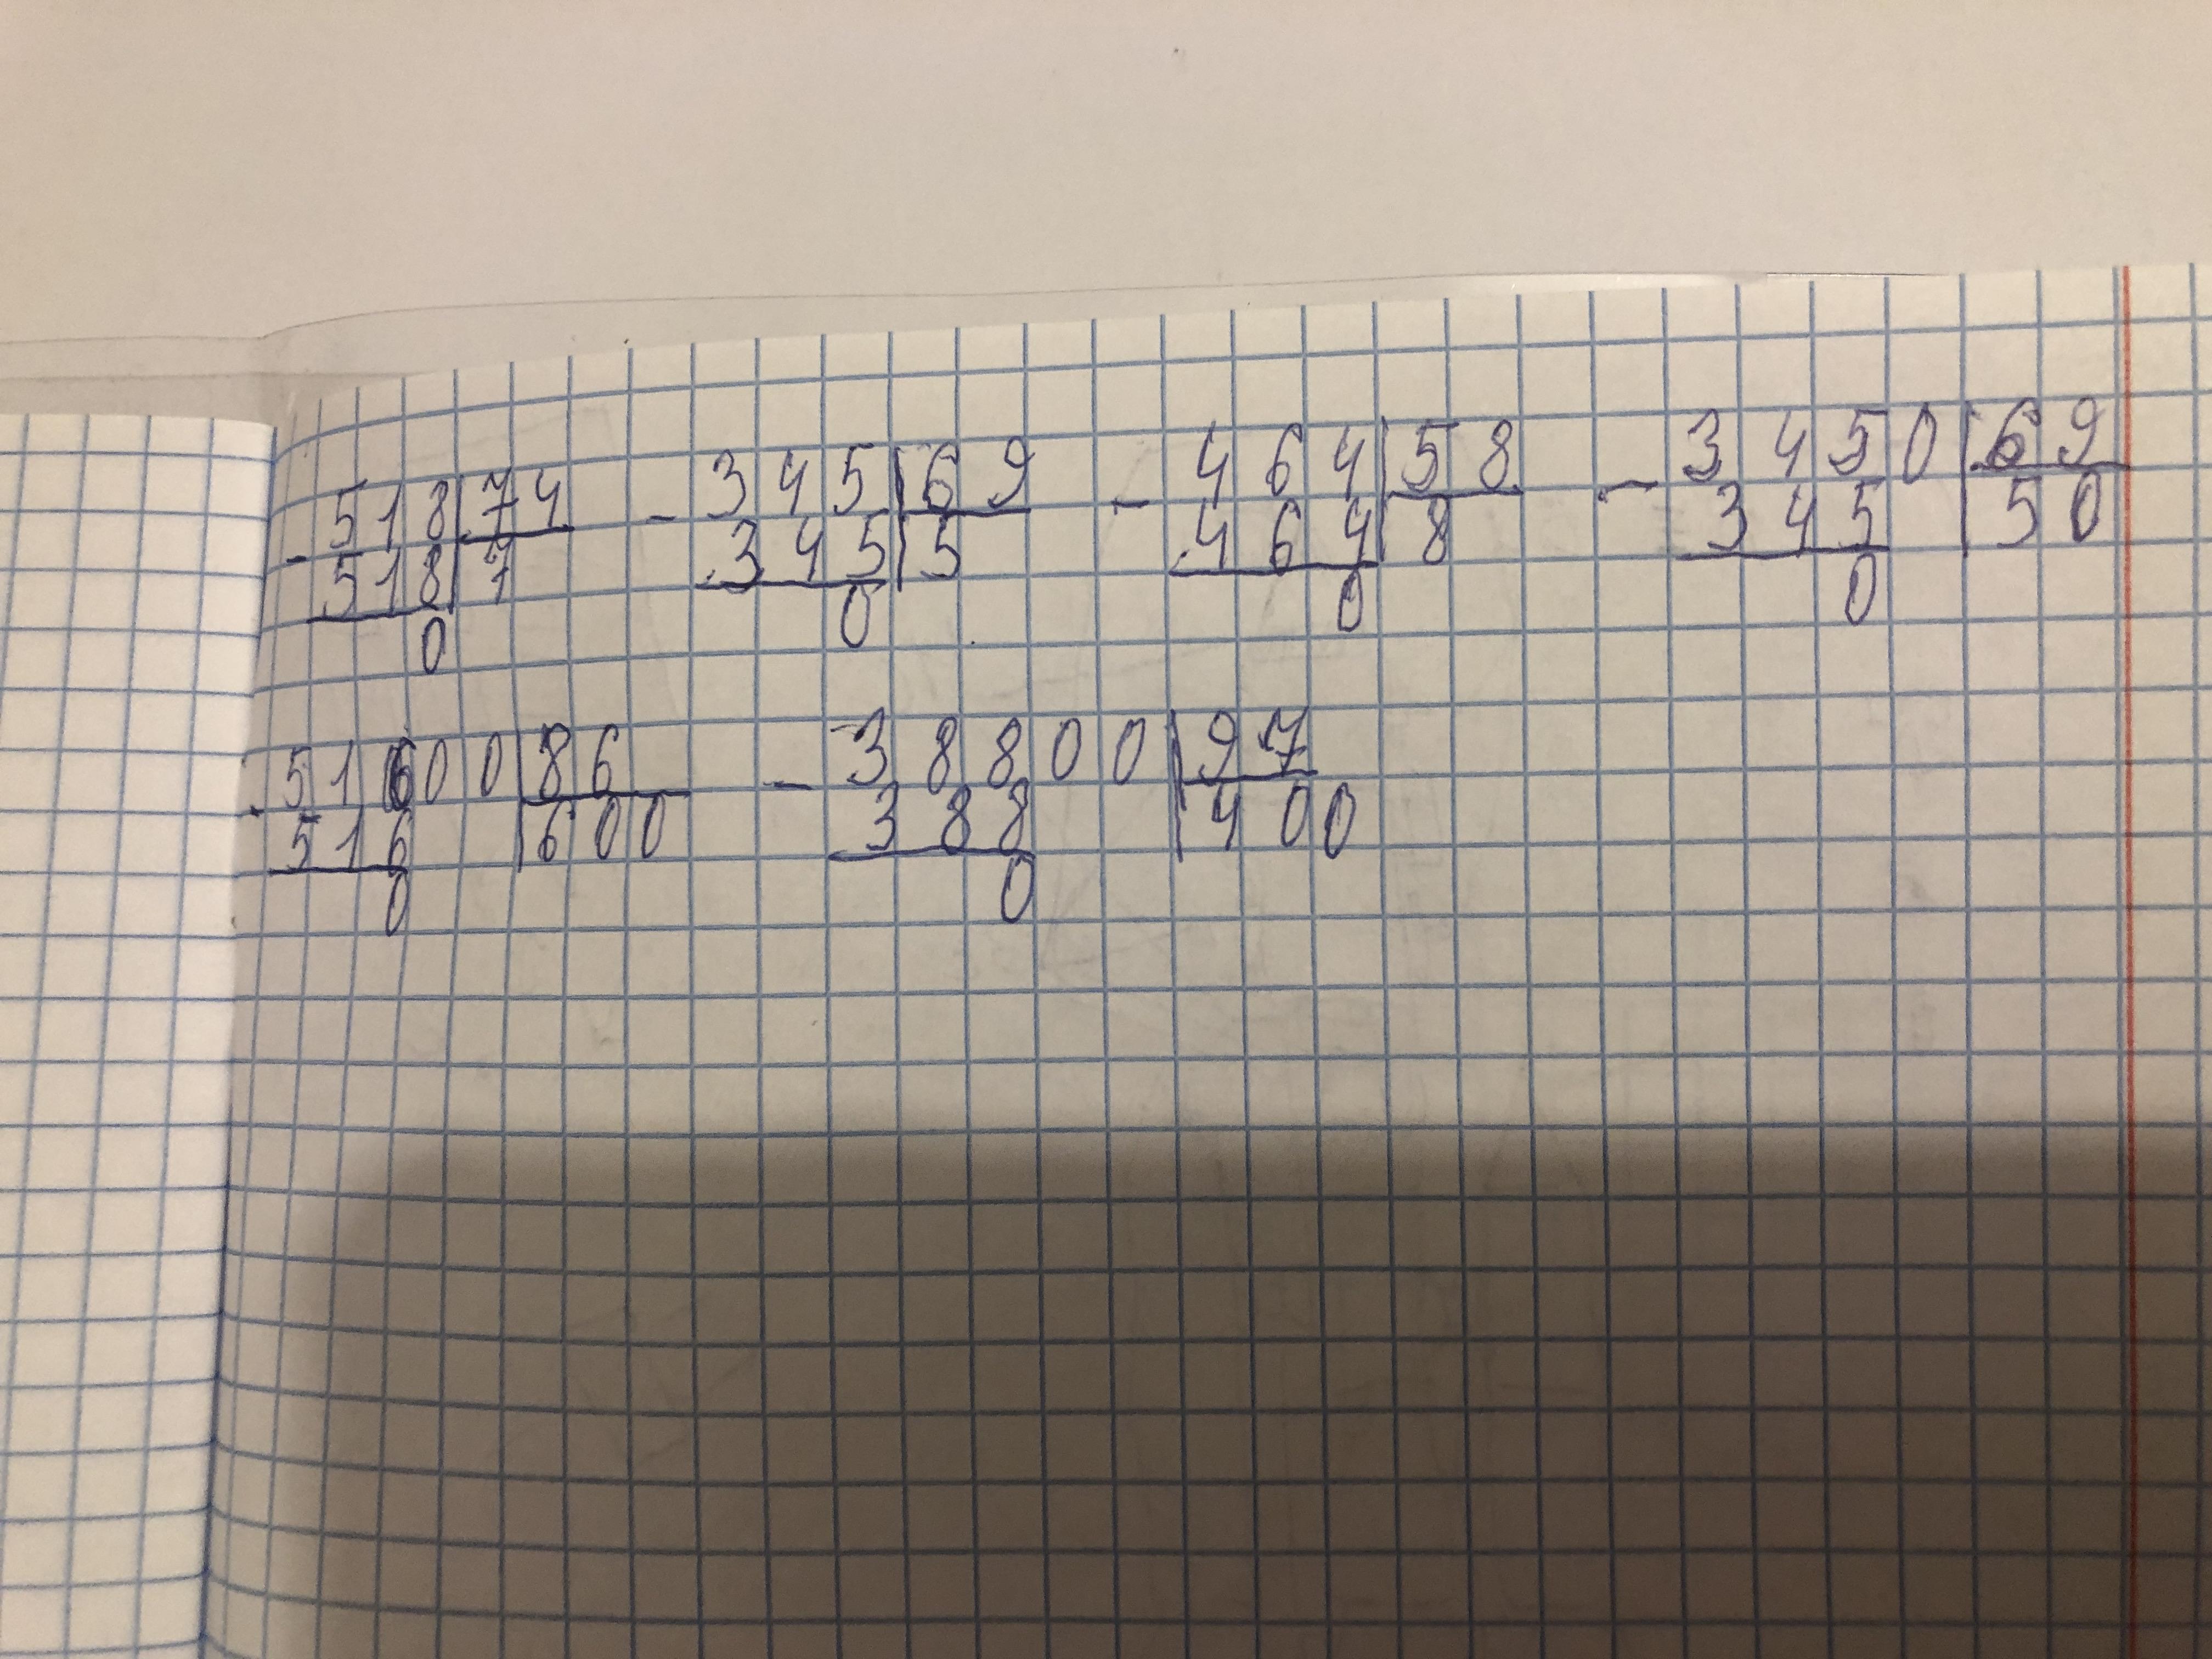 - 518|74 - 345|69 - 464|58 - 3450|69
518|7 345|5 464|8 345 |50
0 0 0 0
- 51600|86 - 38800|97
516 |600 388 |400
0 0